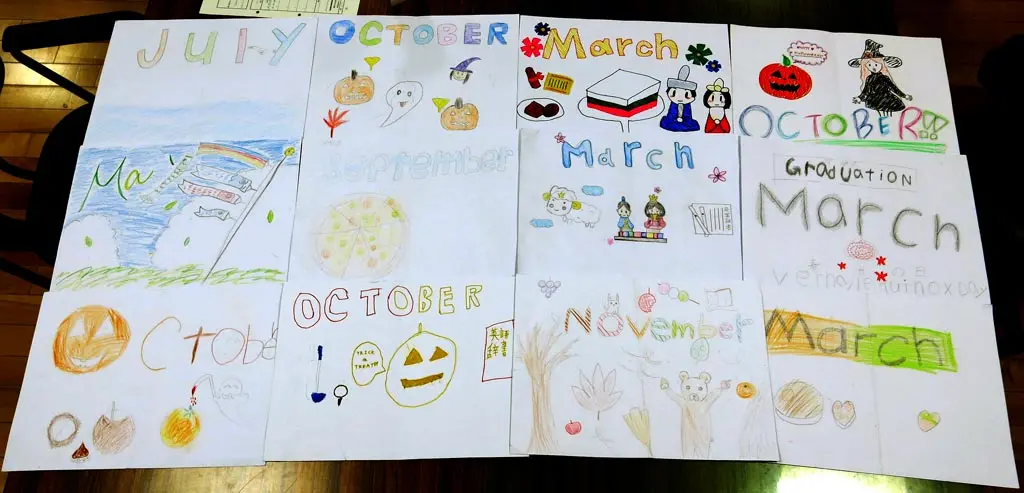 July
OCTOBER
March
OCTOBER!!
May
September
March
GRADUATION
March
October
OCTOBER
TRICK
or
TREAT!!
英語
辞書
November
March